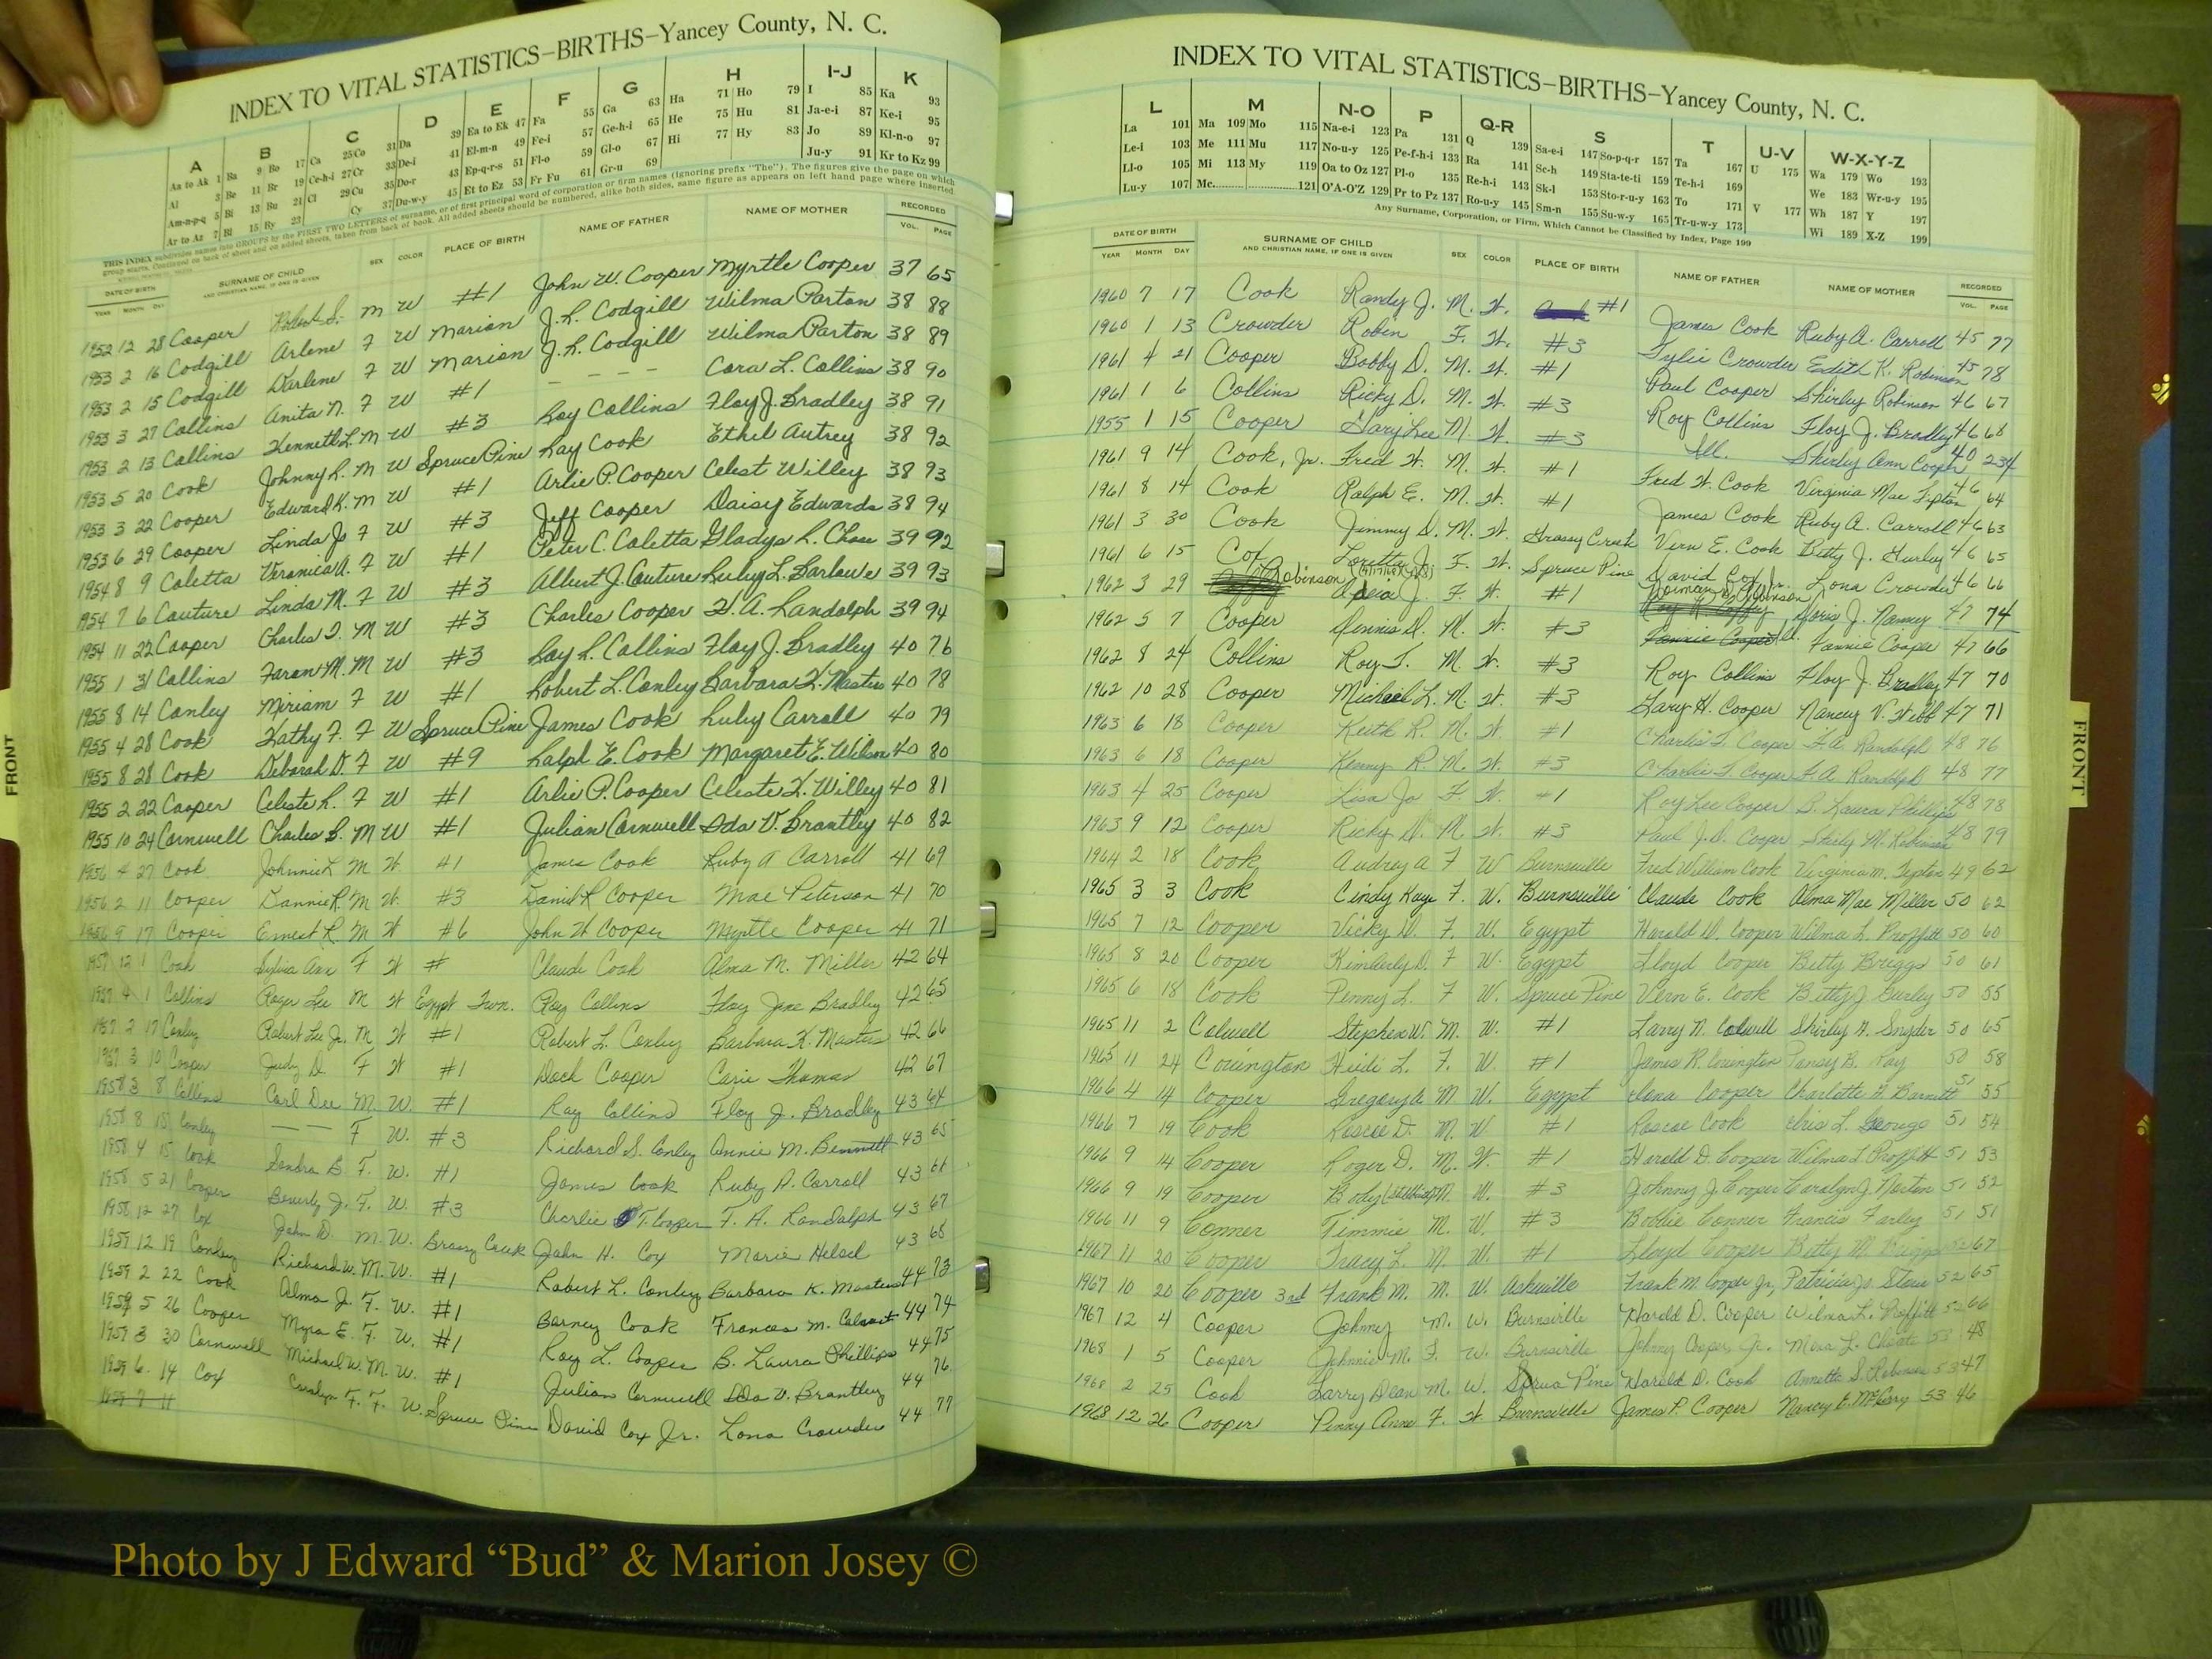 INDEX TO VITAL STATISTICS—BIRTHS—Yancey County, N. C.
A B C D E F G H I-J K
Aa to Ak 1 Ba 9 Bo 17 Ca 25 Co 31 Da 39 Ea to Ek 47 Fa 55 Ga 63 Ha 71 Ho 79 I 85 Ka 93
Al 3 Be 11 Br 19 Ce-h-i 27 Cr 33 De-i 41 El-m-n 49 Fe-i 57 Ge-h-i 65 He 75 Hu 81 Ja-e-i 87 Ke-i 95
Am-n-p-q 5 Bi 13 Bu 21 Cl 29 Cu 35 Do-r 43 Ep-q-r-s 51 Fl-o 59 Gl-o 67 Hi 77 Hy 83 Jo 89 Kl-n-o 97
Ar to Az 7 Bl 15 By 23 Cy 37 Du-w-y 45 Et to Ez 53 Fr Fu 61 Gr-u 69 Ju-y 91 Kr to Kz 99
THIS INDEX subdivides names into GROUPS by the FIRST TWO LETTERS of surname, or of first principal word of corporation or firm names (ignoring prefix "The"). The figures give the page on which
group starts. Continued on back of sheet and on added sheets, taken from back of book. All added sheets should be numbered, alike both sides, same figure as appears on left hand page where inserted.
DATE OF BIRTH SURNAME OF CHILD SEX COLOR PLACE OF BIRTH NAME OF FATHER NAME OF MOTHER RECORDED
YEAR MONTH DAY AND CHRISTIAN NAME, IF ONE IS GIVEN VOL. PAGE
1952 12 28 Cooper M W #1 John W. Cooper Myrtle Cooper 37 65
1953 2 16 Codgill Arlene F W Marion J. L. Codgill Wilma Parton 38 88
1953 2 15 Codgill Darlene F W Marion J. L. Codgill Wilma Parton 38 89
1953 3 27 Collins Anita N. F W #1 – – – – Cora L. Collins 38 90
1953 2 13 Collins Kenneth L. M W #3 Roy Collins Floy J. Bradley 38 91
1953 5 20 Cook Johnny R. M W Spruce Pine Ray Cook Ethel Autrey 38 92
1953 3 22 Cooper Edward K. M W #1 Arlie P. Cooper Celest Willey 38 93
1953 6 29 Cooper Linda Jo F W #3 Jeff Cooper Daisy Edwards 38 94
1954 8 9 Coletta Veronica A. F W #1 Peter C. Coletta Gladys L. Chase 39 92
1954 7 6 Couture Linda M. F W #3 Albert J. Couture Ruby L. Barlowe 39 93
1954 11 22 Cooper Charles T. M W #3 Charles Cooper F. A. Randolph 39 94
1955 1 31 Collins Faron M. M W #3 Roy L. Collins Floy J. Bradley 40 76
1955 8 14 Conley Miriam F W #1 Robert L. Conley Barbara K. Masters 40 78
1955 4 28 Cook Kathy F. F W Spruce Pine James Cook Ruby Carroll 40 79
1955 8 28 Cook Deborah D. F W #9 Ralph E. Cook Margaret E. Wilson 40 80
1955 2 22 Cooper Celeste R. F W #1 Arlie P. Cooper Celeste K. Willey 40 81
1955 10 24 Cornwell Charles B. M W #1 Julian Cornwell Ida V. Brantley 40 82
1956 4 27 Cook Johnnie L M W. #1 James Cook Ruby A Carroll 41 69
1956 2 11 Cooper Dannie R. M W. #3 Daniel R Cooper Mae Peterson 41 70
1956 9 17 Cooper Ernest R M W #6 John W Cooper Myrtle Cooper 41 71
1957 12 1 Cook Sylvia Ann F W # Claude Cook Alma M. Miller 42 64
1957 4 1 Collins Roger Lee M W Egypt Twn. Roy Collins Floy Jane Bradley 42 65
1957 2 17 Conley Robert Lee Jr. M W #1 Robert L. Conley Barbara K. Masters 42 66
1957 3 10 Cooper Judy D. F W #1 Dock Cooper Carie Thomas 42 67
1958 3 8 Collins Carl Dee M. W. #1 Roy Collins Floy J. Bradley 43 64
1958 8 18 Conley — — F W. #3 Richard S. Conley Annie M. Bennett 43 65
1958 4 15 Cook Sandra B. F. W. #1 James Cook Ruby A. Carroll 43 66
1958 5 21 Cooper Beverly J. F. W. #3 Charlie T. Cooper F. A. Randolph 43 67
1958 12 27 Cox John D. M. W. Brassy Creek John H. Cox Marie Helsel 43 68
1959 12 19 Conley Richard W. M. W. #1 Robert L. Conley Barbara K. Masters 44 73
1959 2 22 Cook Alma J. F. W. #1 Barney Cook Frances M. 44 74
1959 5 26 Cooper Myra E. F. W. #1 Roy L. Cooper B. Laura Phillips 44 75
1959 3 30 Cornwell Michael W. M. W. #1 Julian Cornwell Ida V. Brantley 44 76
1959 6 14 Cox Carolyn F. F. W. Spruce Pine David Cox Jr. Lona Crowder 44 77
1959 7 11
INDEX TO VITAL STATISTICS—BIRTHS—Yancey County, N. C.
L M N-O P Q-R S T U-V W-X-Y-Z
La 101 Ma 109 Mo 115 Na-e-i 123 Pa 131 Q 139 Sa-e-i 147 So-p-q-r 157 Ta 167 U 175 Wa 179 Wo 193
Le-i 103 Me 111 Mu 117 No-u-y 125 Pe-f-h-i 133 Ra 141 Sc-h 149 Sta-te-ti 159 Te-h-i 169 We 183 Wr-u-y 195
Ll-o 105 Mi 113 My 119 Oa to Oz 127 Pl-o 135 Re-h-i 143 Sk-l 153 Sto-r-u-y 163 To 171 V 177 Wh 187 Y 197
Lu-y 107 Mc 121 O'A-O'Z 129 Pr to Pz 137 Ro-u-y 145 Sm-n 155 Su-w-y 165 Tr-u-w-y 173 Wi 189 X-Z 199
Any Surname, Corporation, or Firm, Which Cannot be Classified by Index, Page 199
DATE OF BIRTH SURNAME OF CHILD SEX COLOR PLACE OF BIRTH NAME OF FATHER NAME OF MOTHER RECORDED
YEAR MONTH DAY AND CHRISTIAN NAME, IF ONE IS GIVEN VOL. PAGE
1960 7 17 Cook Randy J. M. W. #1 James Cook Ruby A. Carroll 45 77
1960 1 13 Crowder Robin F. W. #3 Crowder Edith K. Robinson 45 78
1961 4 21 Cooper Bobby D. M. W. #1 Paul Cooper Shirley Robinson 46 67
1961 1 6 Collins Ricky D. M. W. #3 Roy Collins Floy J. Bradley 46 68
1955 1 15 Cooper Gary Lee M. W. #3 Ill. Shirley Ann Cooper 40 234
1961 9 14 Cook, Jr. Fred W. M. W. #1 Fred W. Cook Virginia Mae Tipton 46 64
1961 8 14 Cook Ralph E. M. W. #1 James Cook Ruby A. Carroll 46 63
1961 3 30 Cook Jimmy D. M. W. Grassy Creek Vern E. Cook Betty J. Gurley 46 65
1961 6 15 Cox Loretta J. F. W. Spruce Pine David Cox Jr. Lona Crowder 46 66
1962 3 29 Robinson J. F. W. #1 Norman Robinson Doris J. Nanney 47 74
1962 5 7 Cooper Dennis D. M. W. #3 Fannie Cooper 47 66
1962 8 24 Collins Roy T. M. W. #3 Roy Collins Floy J. Bradley 47 70
1962 10 28 Cooper Michael L. M. W. #3 Gary H. Cooper Nancy V. Webb 47 71
1963 6 18 Cooper Keith R. M. W. #1 Charlie T. Cooper F. A. Randolph 48 76
1963 6 18 Cooper Kenny R. M. W. #3 Charlie T. Cooper F. A. Randolph 48 77
1963 4 25 Cooper Lisa Jo F. W. #1 Roy Lee Cooper B. Laura Phillips 48 78
1963 9 12 Cooper Ricky D. M. W. #3 Paul J. D. Cooper Shirly M. Robinson 48 79
1964 2 18 Cook Audrey A F W Burnsville Fred William Cook Virginia M. Tipton 49 62
1965 3 3 Cook Cindy Kaye F. W. Burnsville Claude Cook Alma Mae Miller 50 62
1965 7 12 Cooper Vicky D. F. W. Egypt Harold D. Cooper Wilma L. Proffitt 50 60
1965 8 20 Cooper Kimberly D. F W. Egypt Lloyd Cooper Betty Briggs 50 61
1965 6 18 Cook Penny L. F W. Spruce Pine Vern E. Cook Betty J Gurley 50 55
1965 11 2 Colwell Stephen W. M. W. #1 Larry N. Colwell Shirley A. Snyder 50 65
1965 11 24 Covington Heidi L. F. W. #1 James R. Covington Pansy B. Ray 50 58
1966 4 14 Cooper Gregory A M W. Egypt Cooper Charlotte A. Barnett 51 55
1966 7 19 Cook Roscoe D. M. W #1 Roscoe Cook Iris L. George 51 54
1966 9 14 Cooper Roger D. M. W. #1 Harold D. Cooper Wilma L Proffitt 51 53
1966 9 19 Cooper Body (stillborn) M. W. #3 Johnny J. Cooper Carolyn J. Norton 51 52
1966 11 9 Conner Timmie M. W. #3 Bobbie Conner Francis Farley 51 51
1967 11 20 Cooper Tracy L. M. W. #1 Lloyd Cooper Betty M. Briggs 52 67
1967 10 20 Cooper 3rd Frank M. M. W. Asheville Frank M. Cooper Jr, Patricia Jo. 52 65
1967 12 4 Cooper Johnny M. W. Burnsville Harold D. Cooper Wilma L. Proffitt 52 66
1968 1 5 Cooper Johnnie M. F. W. Burnsville Johnny Cooper, Jr. 53 48
1968 2 25 Cook Larry Dean M. W. Spruce Pine Harold D. Cook Annette S. Robinson 53 47
1968 12 26 Cooper Penny Anne F. W Burnsville James P. Cooper Nancy E. McCrary 53 46
FRONT
FRONT
Photo by J Edward “Bud” & Marion Josey ©